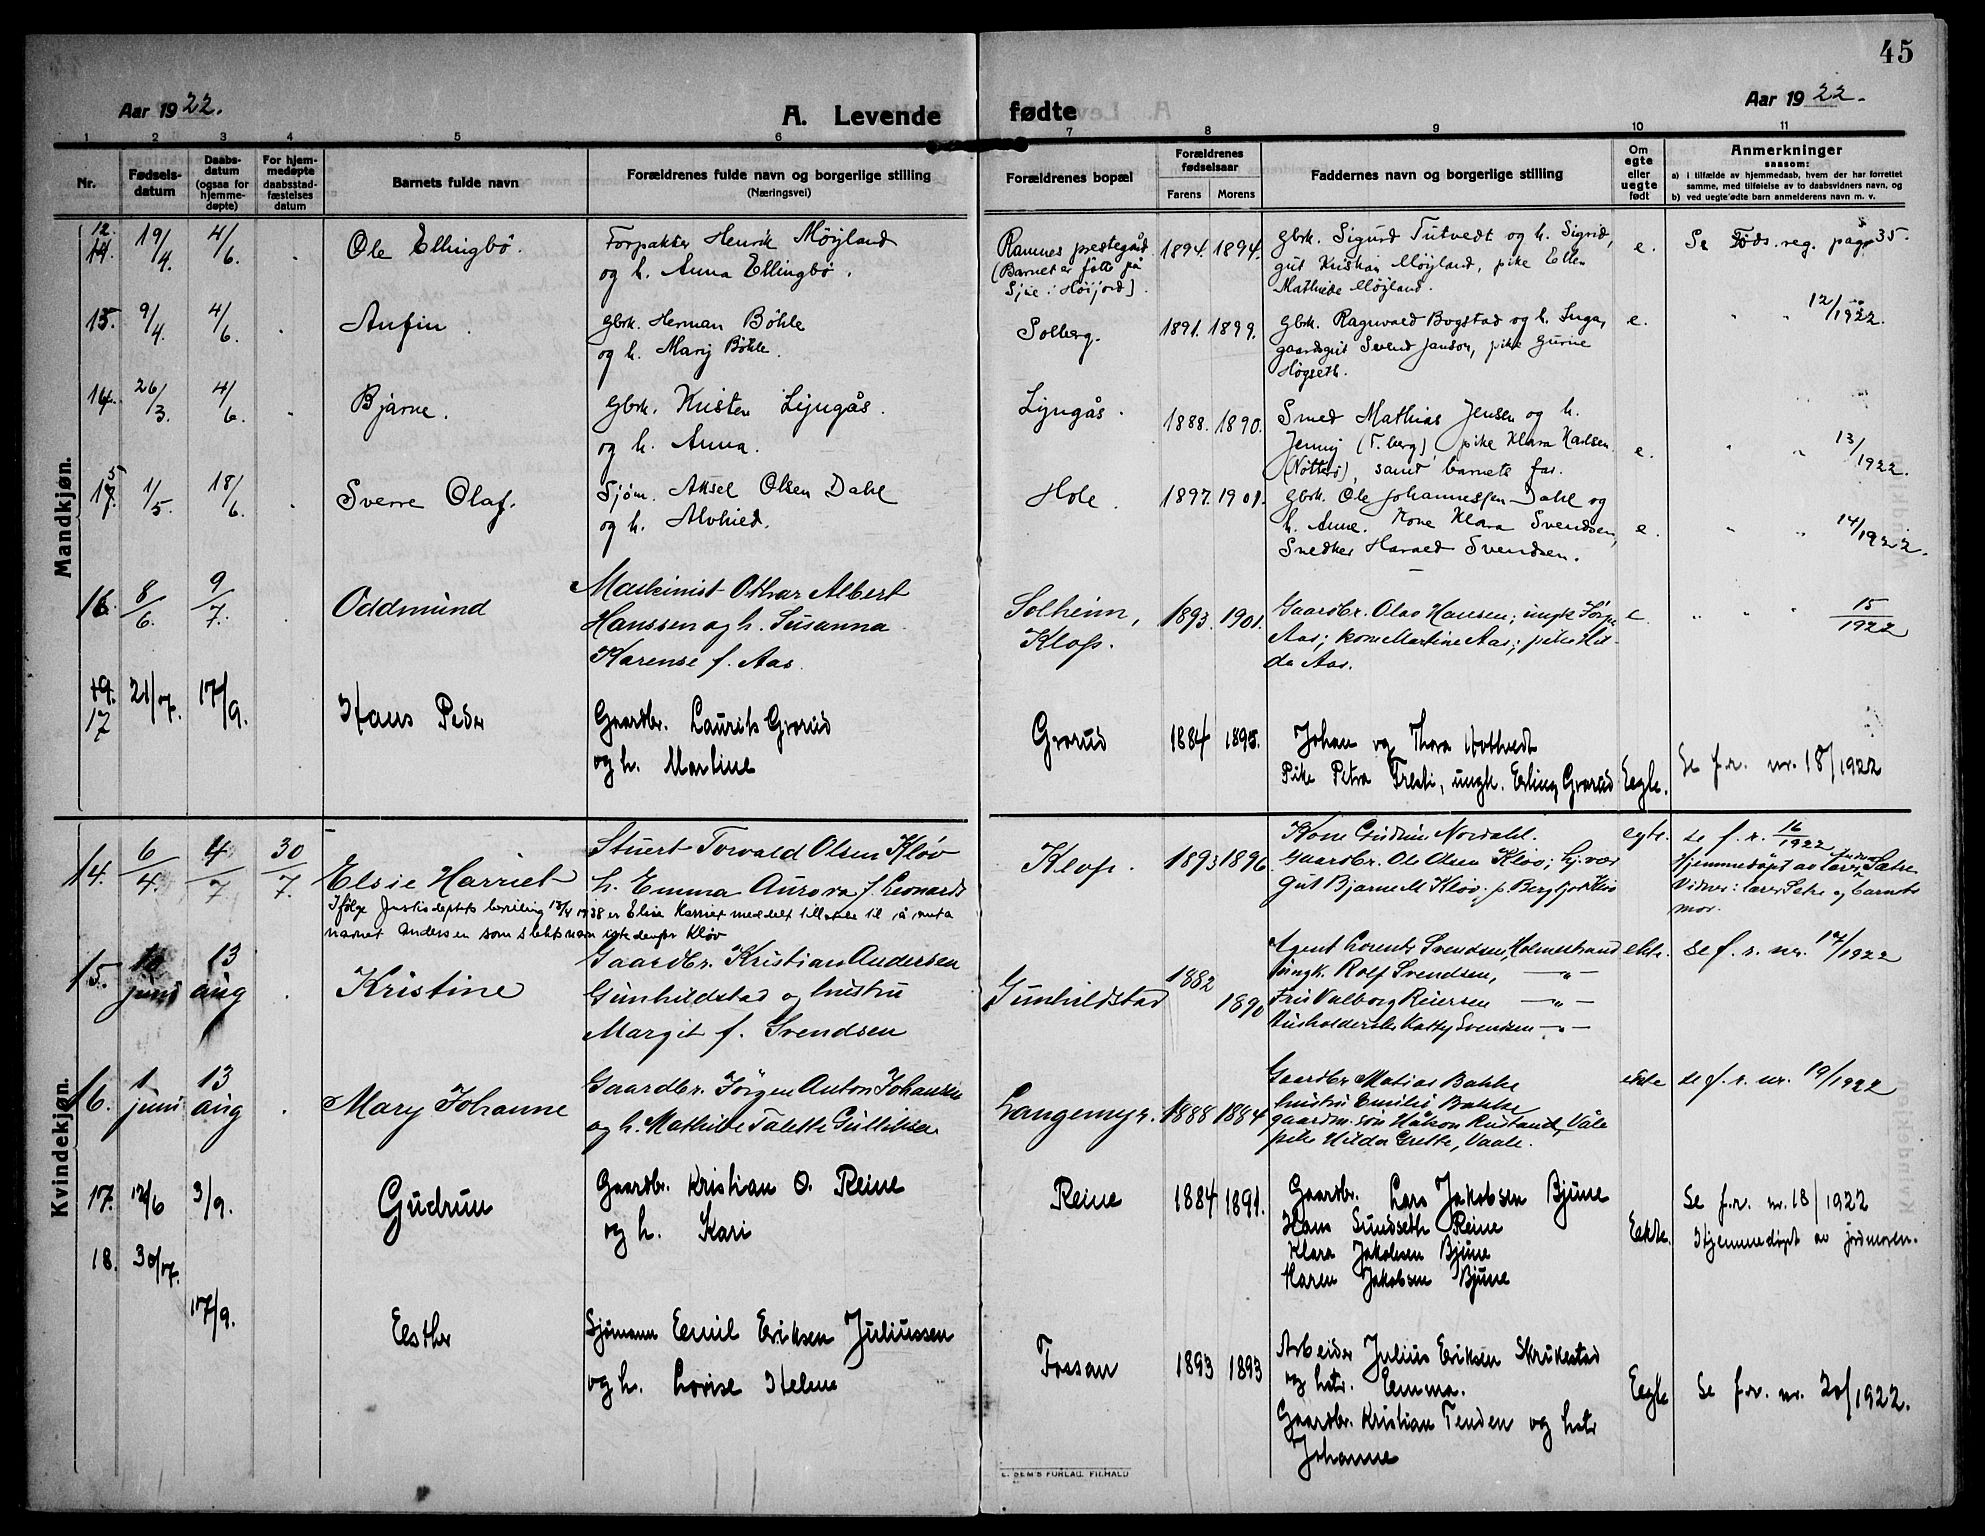 45
Aar 1922.
A. Levende fødte
Aar 1922.
1 2 3 4 5 6 7 8 9 10 11
Nr.
Fødsels-datum
Daabs-datum (ogsaa for hjemme-døpte)
For hjem-medøpte daabsstad-fæstelses datum
Barnets fulde navn
Forældrenes fulde navn og borgerlige stilling (Næringsvei)
Forældrenes bopæl
Forældrenes fødselsaar
Farens Morens
Faddernes navn og borgerlige stilling
Om egte eller uegte født
Anmerkninger
saasom:
a) i tilfælde av hjemmedaab, hvem der har forrettet samme, med tilføielse av to daabsvidners navn, og
b) ved uegte fødte barn anmelderens navn m. v.
Mandkjøn.
12. 19/4. 4/6. Ole Ellingbö.
Forpakter Henrik Möyland
og h. Anna Ellingbö.
Ramnes prestegård
(Barnet er født på
Sjue i Höijord).
1894. 1894.
Gbrk. Sigurd Tutvedt og h. Sigrid,
gut Kristian Möyland, pike Ellen
Mathilde Möyland.
e.
Se Föds. reg. pag. 35.
13. 9/4. 4/6. Anfin.
Gbrk. Herman Böhle
og h. Mary Böhle.
Solberg.
1891. 1899.
Gbrk. Ragnvald Bogstad og h. Inga,
gaardsgut Svend Janson, pike Gurine
Högseth.
e.
" " 12/1922.
14. 26/3. 4/6. Bjarne.
Gbrk. Kristen Lyngås.
og h. Anna.
Lyngås.
1888. 1890.
Smed Mathias Jensen og h.
Jenny (T.berg) pike Klara Karlsen
(Nötterö), samt barnets far.
e.
" " 13/1922.
15. 1/5. 18/6. Sverre Olaf.
Sjøm. Aksel Olsen Dahl
og h. Alvhild.
Hole.
1897. 1901.
Gbrk. Ole Johannessen Dahl og
h. Anne. Kone Klara Svendsen,
Snedker Harald Svendsen.
e.
" " 14/1922.
16. 8/6. 9/7. Oddmund
Maskinist Othar Albert
Hanssen og h. Susanna
Karense f. Aas.
Solheim,
Klops.
1893. 1901.
Gaardbr. Olav Hansen; ungk.
Aas; kone Martine Aas; pike Hil-
da Aas.
e.
" " 15/1922
19. 17 21/7. 17/9. Hans Peder
Gaardbr. Laurits Grorud
og h. Martine
Grorud
1884 1895.
Johan og Thora Hottvedt
Pike Petra Fresti, ungk. Erling Grorud
Eegte.
Se f.r. nr. 18/1922
Kvindekjøn.
14. 6/4. 4/7 30/7. Elsie Harriet
Stuert Torvald Olsen Kløv
h. Emma Aurora f. Leonardt
Ifölge Justisdeptets bevilling 13/4 1938 er Elsie Harriet meddelt tillatelse til å anta
navnet Andersen som slektsnavn istedenfor Kløv
Klops.
1893 1896
Kone Gudrun Nordahl.
Gaardbr. Ole Olsen Kløv;
Gut Bjarne M Kløv. p. Kløv
egte.
se f. r. 16/1922
Hjemmedöpt av lærer Sætre
Vidner: lærer Sætre og barnets
mor.
15. juni 13 aug. Kristine
Gaardbr. Kristian Andersen
Gunhildstad og hustru
Margit f. Svendsen
Gunhildstad
1882 1890
Agent Lorents Svendsen, Holmestrand
ungk. Rolf Svendsen, — " —
Frk Valborg Reiersen — " —
Husholderske Kathy Svendsen — " —
ekte.
se f. r. nr. 17/1922
16. 1 juni 13 aug. Mary Johanne
Gaardbr. Jörgen Anton Johansen
og h. Mathilde Talette Gullichsen
Langemyr.
1888 1884
Gaardbr Matias Bakke
hustru Emilie Bakke
gaardm. sön Håkon Rustand, Våle
pike Hilda Grette, Vaale.
ekte
se f. r. nr. 19/1922
17. 12/6 3/9. Gudrun
Gaardbr. Kristian O. Reine
og h. Kari
Reine
1884 1891.
Gaardbr. Lars Jakobsen Bjune
Hans Sundseth Reine
Klara Jakobsen Bjune
Karen Jakobsen Bjune
Eekte.
Se f.r. nr. 18/1922
Hjemmedöpt av jordmoren.
18. 30/7. 17/9. Esther
Sjömann Emil Eriksen Juliussen
og h. Lovise Helene
Fossan
1893 1893
Arbeider Julius Eriksen Skrukestad
og hstr. Emma.
Gaardbr. Kristian Tenden og hstr
Johanne
Eegte
Se f.r. nr. 20/1922.
E. SEM'S FORLAG, FR.HALD